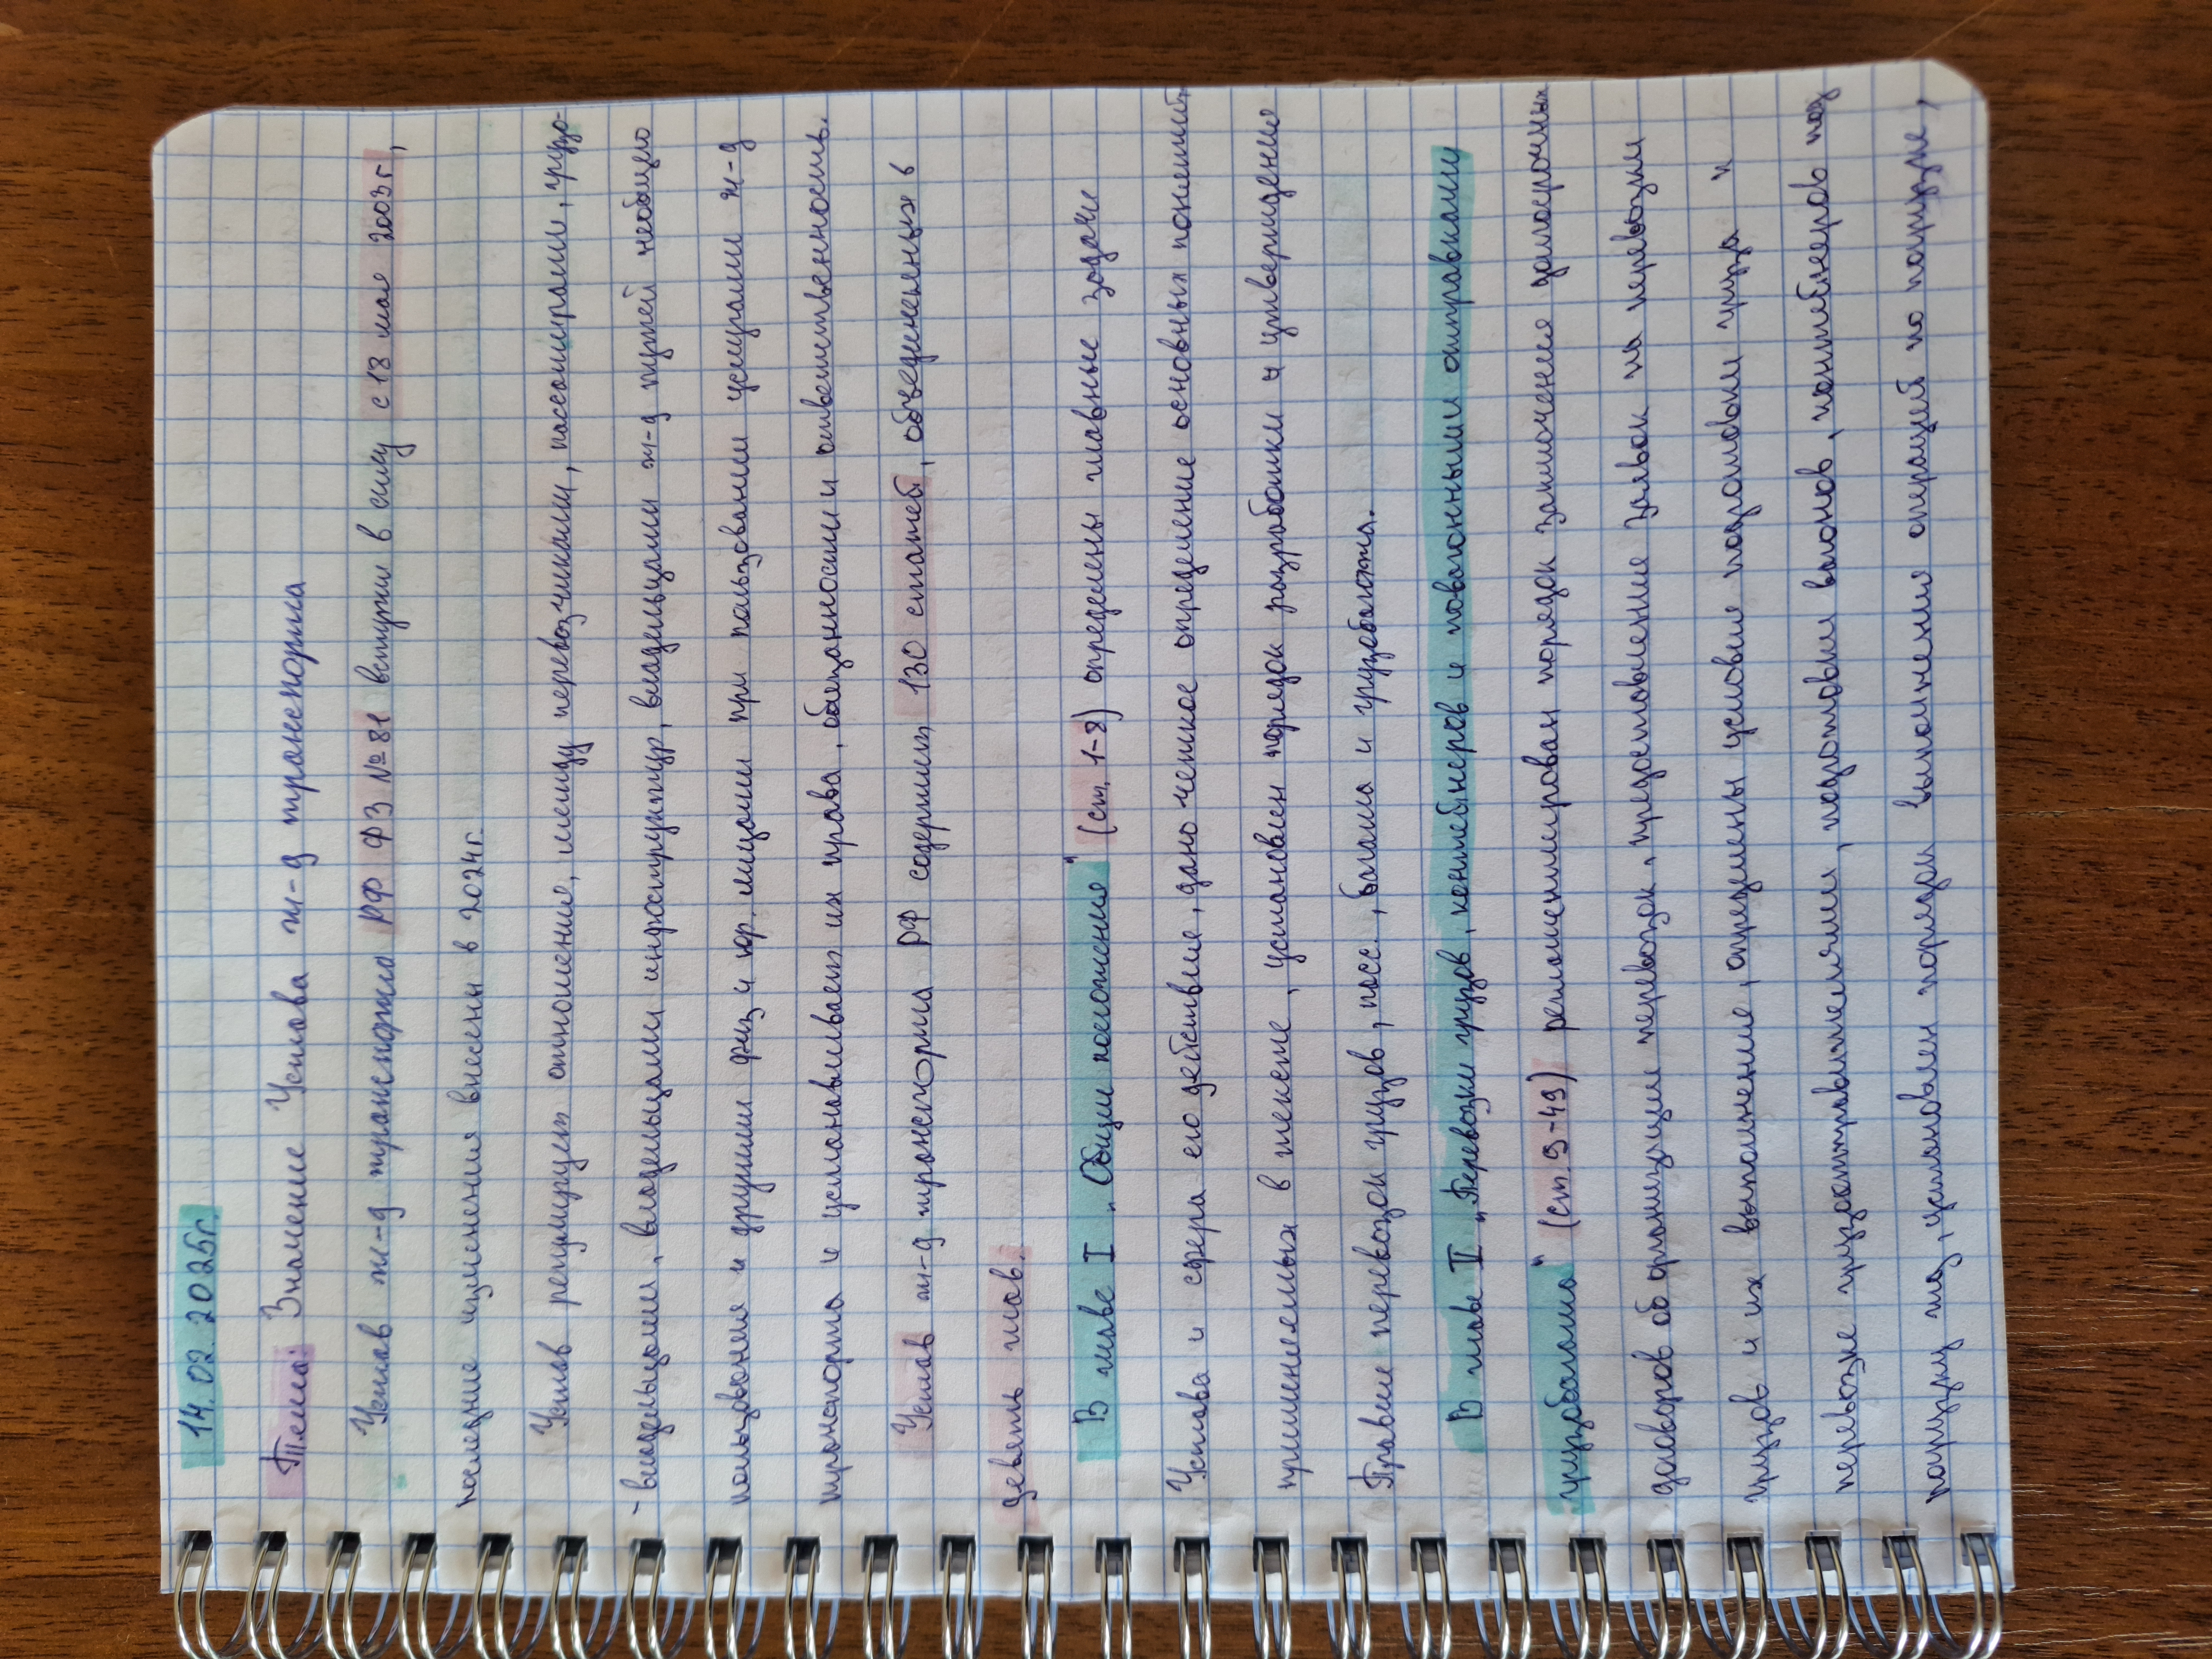 14.02.2025г.
Тема: Значение Устава ж-д транспорта
Устав ж-д транспорта РФ ФЗ №81 вступил в силу с 18 мая 2003г,
последние изменения внесены в 2024г.
Устав регулирует отношения, между перевозчиками, пассажирами, грузо-
-владельцами, владельцами инфраструктур, владельцами ж-д путей необщего
пользования и другими физ и юр. лицами при пользовании услугами ж-д
транспорта и устанавливает их права, обязанности и ответственность.
Устав ж-д транспорта РФ содержит 130 статей, объединенных в
девять глав.
В главе I „Общие положения" (ст. 1-8) определены главные задачи
Устава и сфера его действия, дано четкое определение основных понятий
применяемых в тексте, установлен порядок разработки и утверждение
Правил перевозок грузов, пасс., багажа и грузобагажа.
В главе II „Перевозки грузов, контейнеров и повагонными отправками
грузобагажа" (ст. 9-49) регламентирован порядок заключения долгосрочных
договоров об организации перевозок, предоставление заявок на перевозки
грузов и их выполнение, определены условия подготовки груза и
перевозке грузоотправителями, подготовки вагонов, контейнеров под
погрузку та, установлен порядок выполнения операций по погрузке,